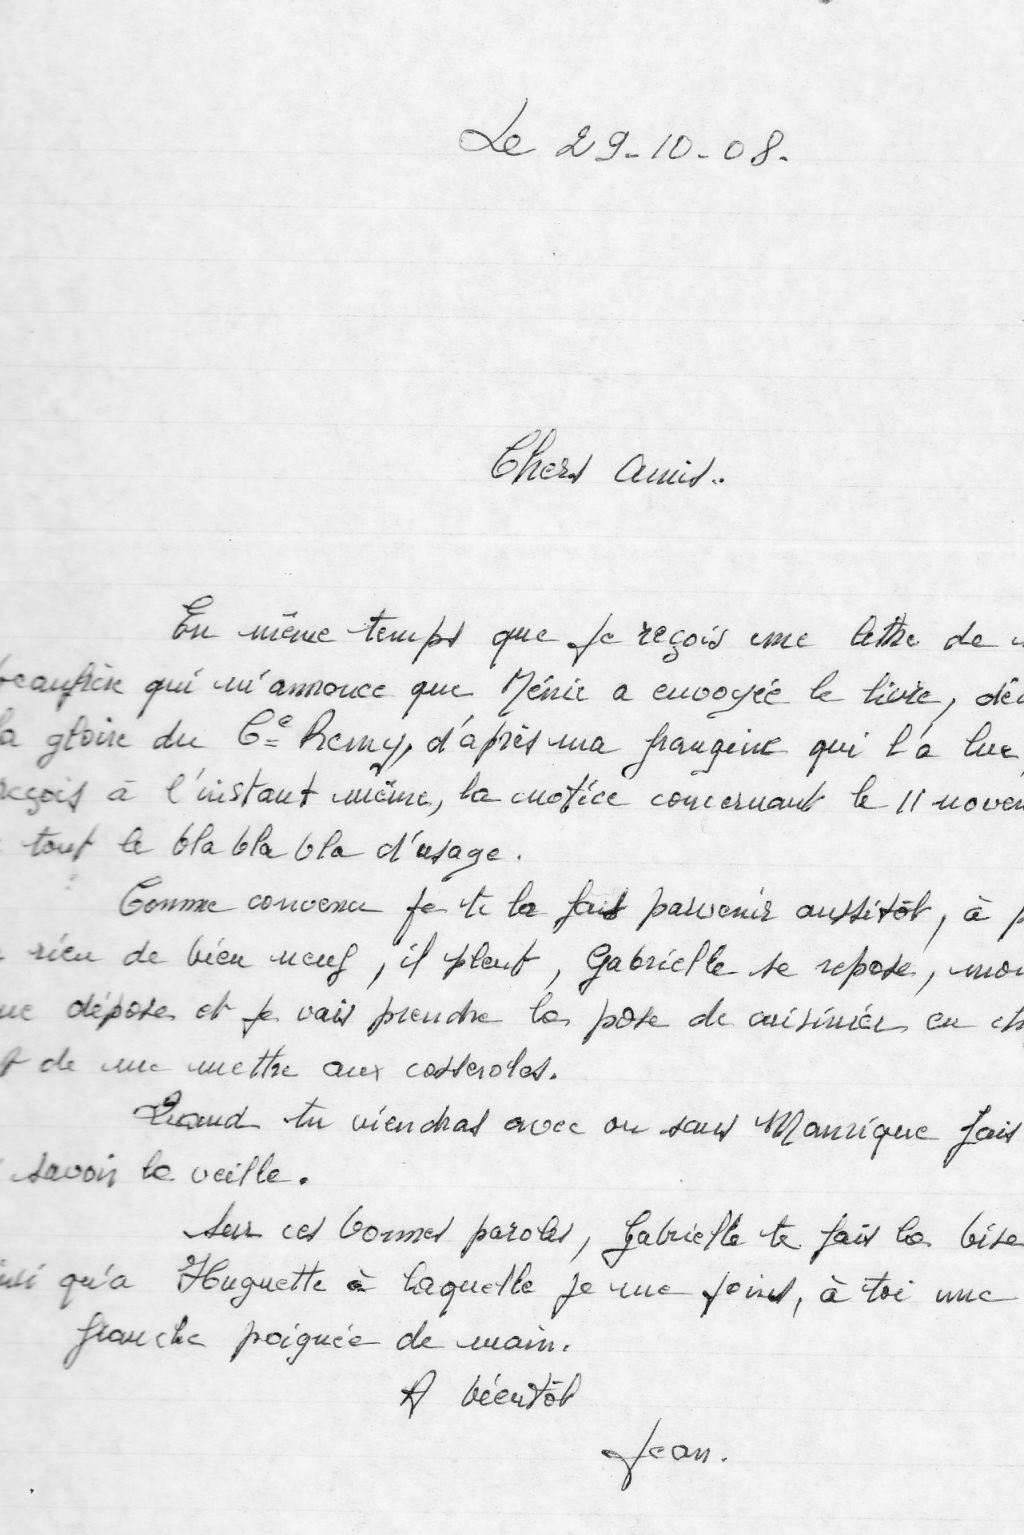 Le 29-10-08.
Chers Amis..
En même temps que je reçois une lettre de
beaufrère qui m'annonce que Ménie a envoyée le livre,
la gloire du Cie Remy, d'après ma frangine qui l'a lue,
reçois à l'instant même, la notice concernant le 11 novem
tout le bla bla bla d'usage.
Comme convenu je te la fait parvenir aussitôt, à
rien de bien neuf, il pleut, Gabrielle se repose, mon
me dépose et je vais prendre la pose de cuisinier en
de me mettre aux casseroles.
Quand tu viendras avec ou sans Manrique fais
savoir la veille.
Sur ces bonnes paroles, Gabrielle te fais la bise
insi qu'a Huguette à laquelle je me joins, à toi une
franche poignée de main.
A bientôt
Jean.